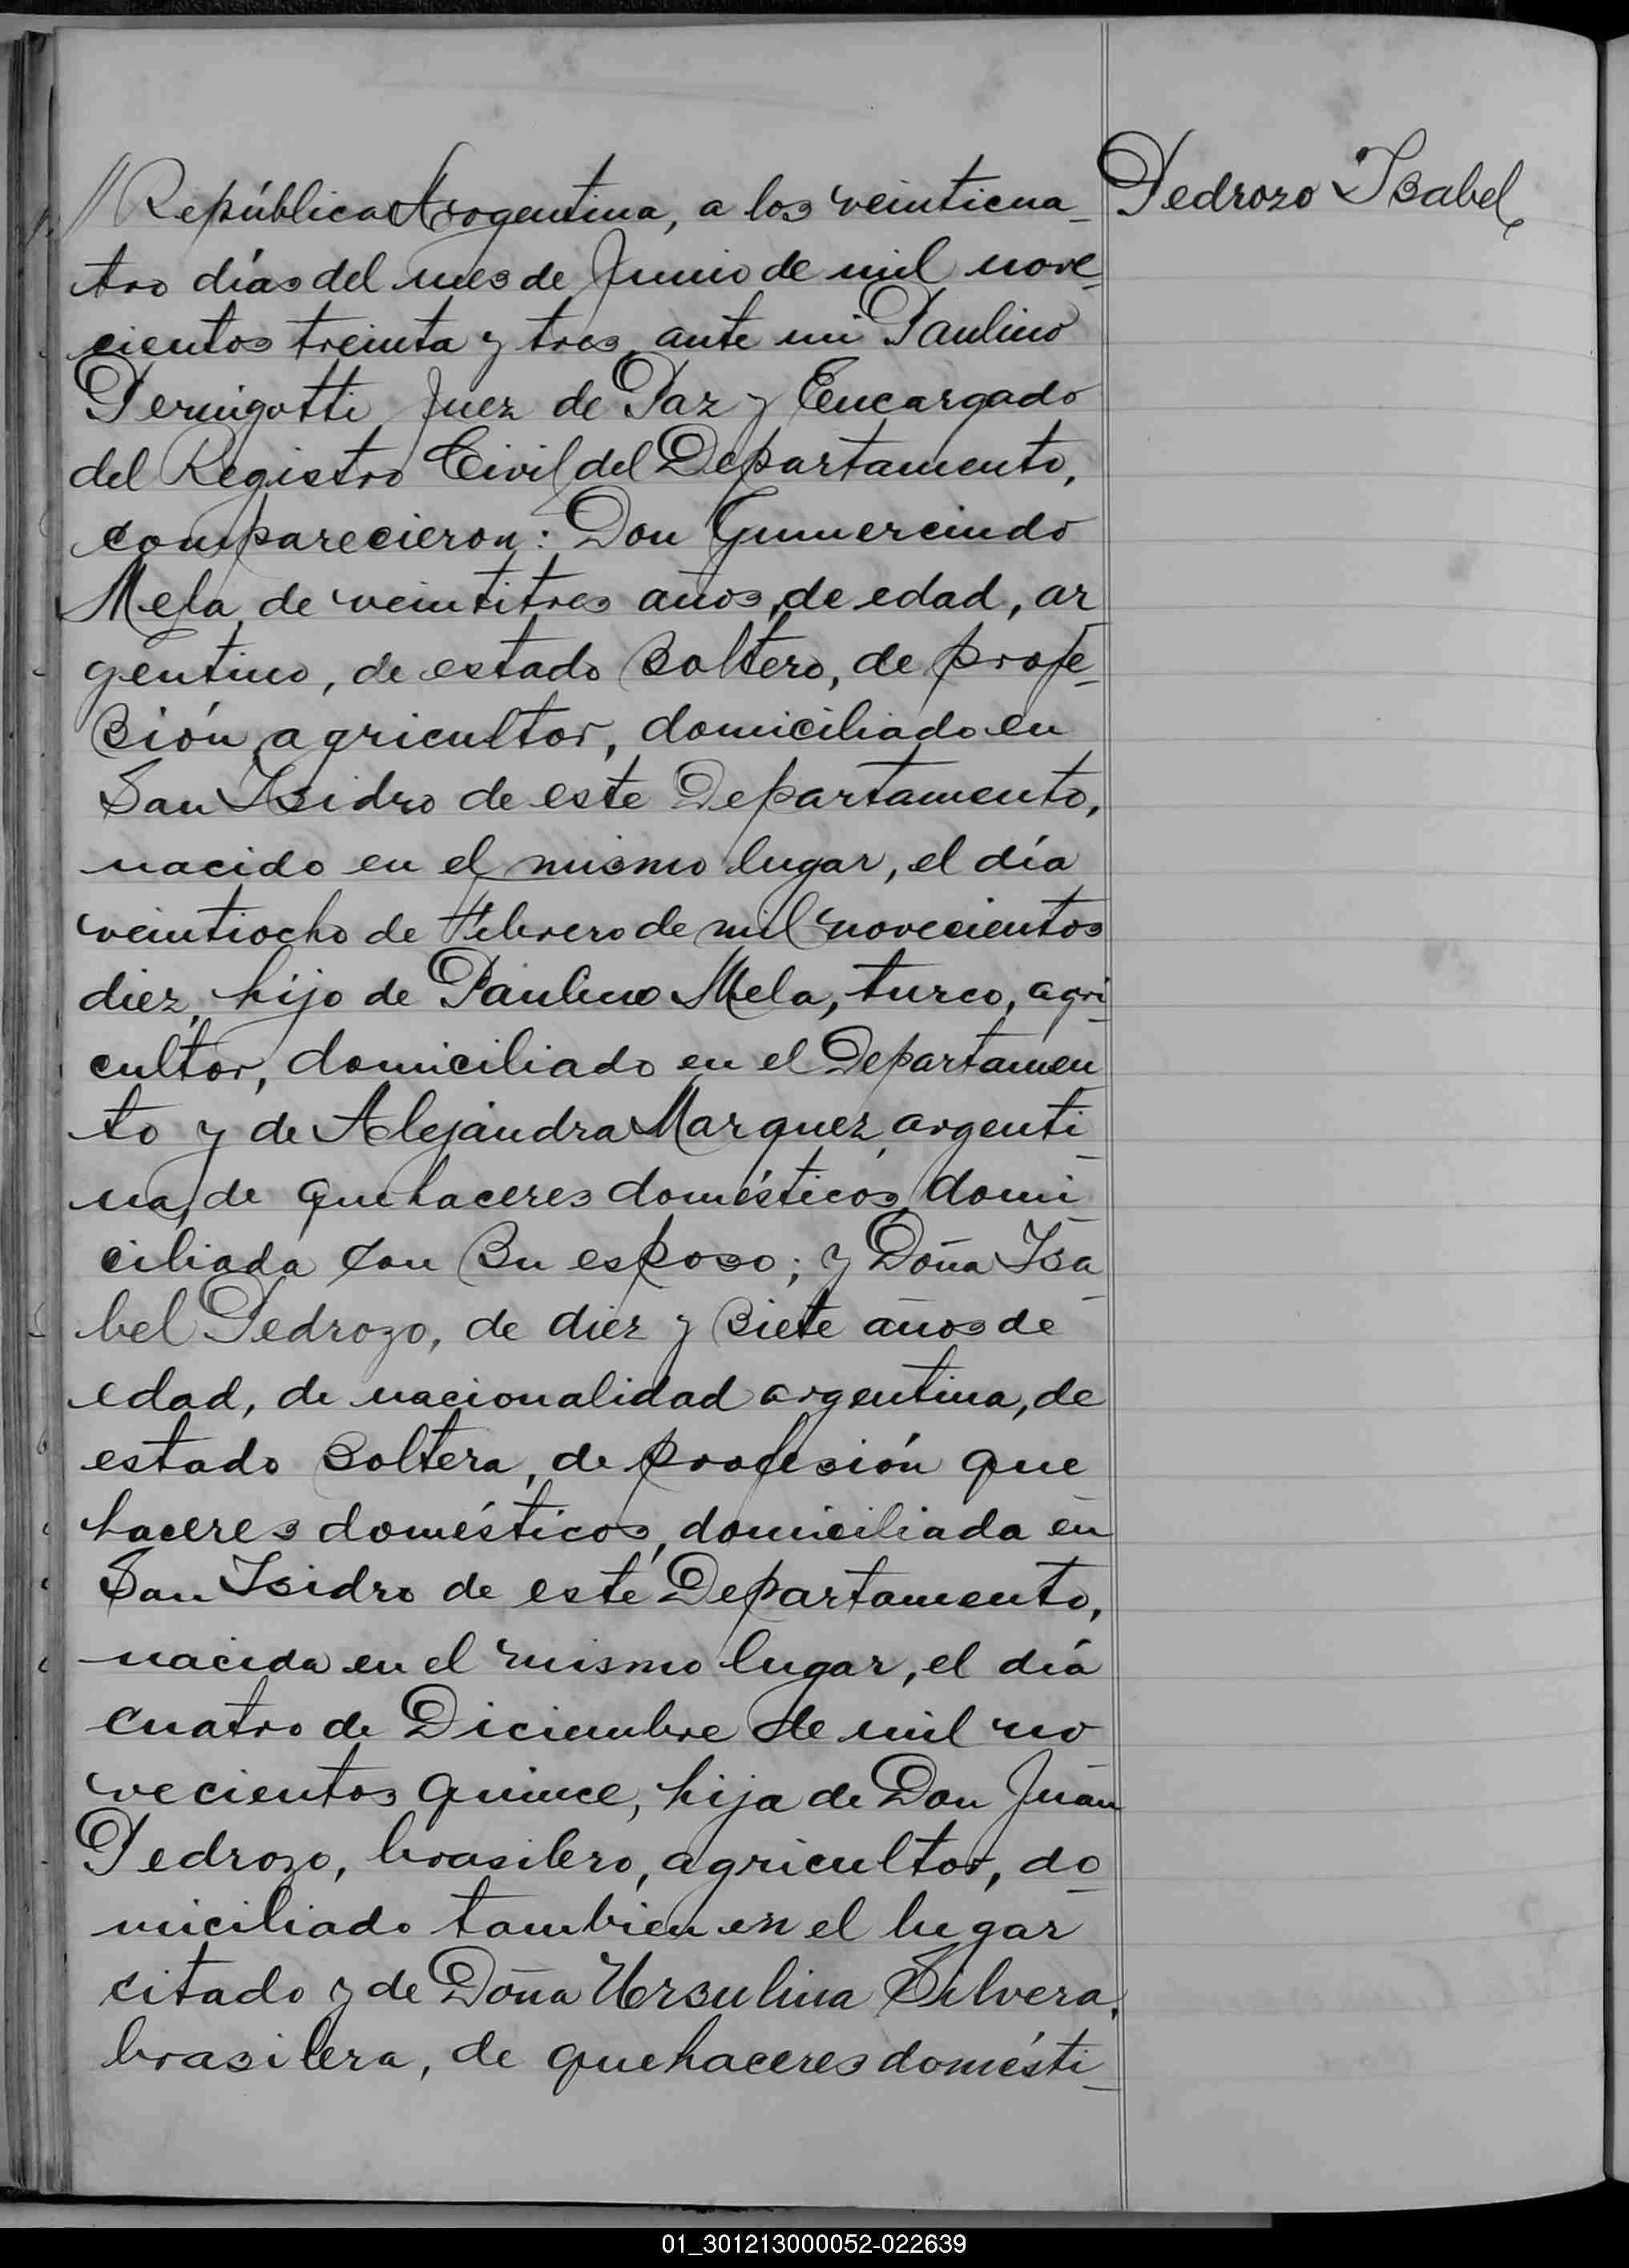 Pedrozo Isabel
// República Argentina, a los veinticua_
tro días del mes de Junio de mil nove_
cientos treinta y tres, ante mi Paulino
Pernigotti Juez de Paz y Encargado
del Registro Civil del Departamento,
comparecieron: Don Gumercindo
Mela, de veintitres años, de edad, ar_
gentino, de estado soltero, de profe_
sión agricultor, domiciliado en
San Isidro de este Departamento,
nacido en el mismo lugar, el día
veintiocho de Febrero de mil novecientos
diez, hijo de Paulino Mela, turco, agri_
cultor, domiciliado en el Departamen_
to y de Alejandra Marquez, argenti_
na, de quehaceres domésticos, domi_
ciliada con su esposo; y Doña Isa_
bel Pedrozo, de diez y siete años de
edad, de nacionalidad argentina, de
estado soltera, de profesión que_
haceres domésticos, domiciliada en
San Isidro de este Departamento,
nacida en el mismo lugar, el día
cuatro de Diciembre de mil no_
vecientos quince, hija de Don Juan
Pedrozo, brasilero, agricultor, do_
miciliado tambien en el lugar
citado y de Doña Ursulina Silvera,
brasilera, de quehaceres domésti_
01_301213000052-022639